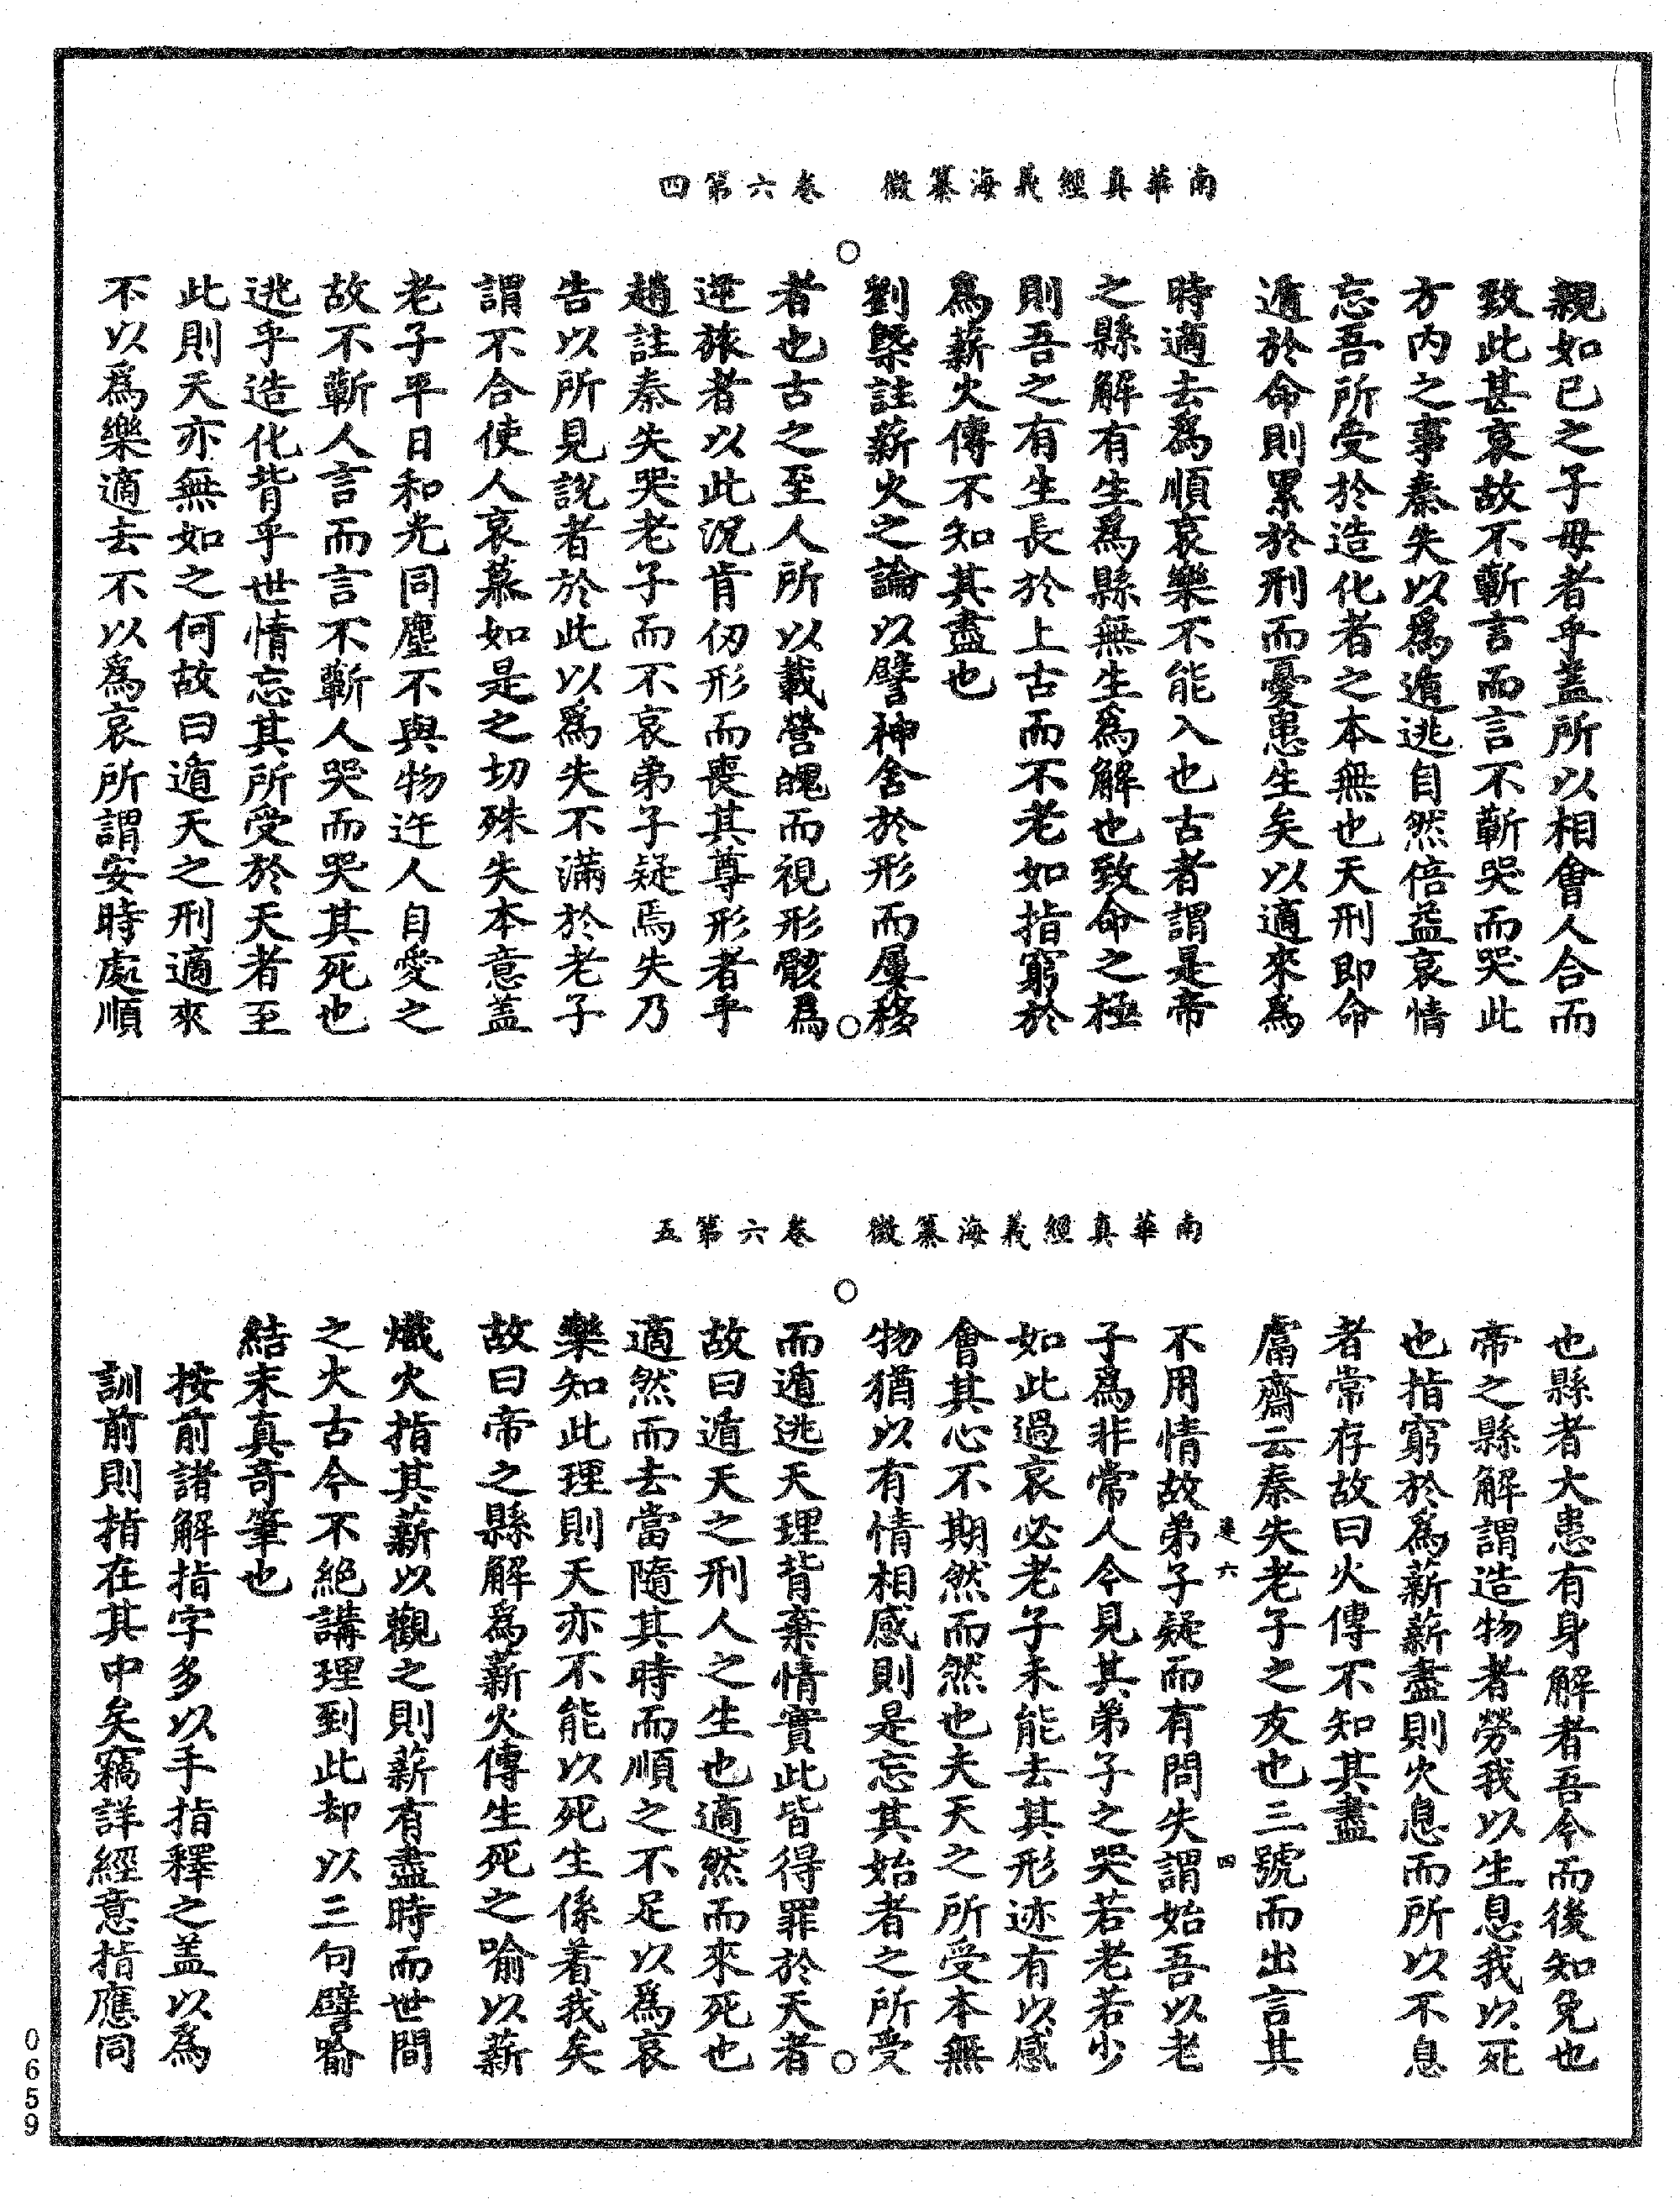 南華真經義海纂微　卷六第四
親如已之子母者乎盖所以相會人合而
致此甚哀故不蘄言而言不蘄哭而哭此
方内之事秦失以爲遁逃自然倍益哀情
忘吾所受於造化者之本無也天刑即命
遁於命則累於刑而憂患生矣以適來爲
時適去爲順哀樂不能入也古者謂是帝
之縣解有生爲縣無生爲解也致命之極
則吾之有生長於上古而不老如指窮於
爲薪火傳不知其盡也
劉槩註薪火之論以譬神舍於形而屢移
者也古之至人所以載營魄而視形骸爲
逆旅者以此況肯仞形而喪其尊形者乎
趙註秦失哭老子而不哀弟子疑焉失乃
告以所見說者於此以爲失不滿於老子
謂不合使人哀慕如是之切殊失本意盖
老子平日和光同塵不與物迕人自愛之
故不蘄人言而言不蘄人哭而哭其死也
逃乎造化背乎世情忘其所受於天者至
此則天亦無如之何故曰遁天之刑適來
不以爲樂適去不以爲哀所謂安時處順
南華真經義海纂微　卷六第五
也縣者大患有身解者吾今而後知免也
帝之縣解謂造物者勞我以生息我以死
也指窮於爲薪薪盡則火息而所以不息
者常存故曰火傳不知其盡
鬳齋云秦失老子之友也三號而出言其
不用情故弟子疑而有問失謂始吾以老
子爲非常人今見其弟子之哭若老若少
如此過哀必老子未能去其形迹有以感
會其心不期然而然也夫天之所受本無
物猶以有情相感則是忘其始者之所受
而遁逃天理背棄情實此皆得罪於天者
故曰遁天之刑人之生也適然而來死也
適然而去當隨其時而順之不足以爲哀
樂知此理則天亦不能以死生係着我矣
故曰帝之縣解爲薪火傳生死之喻以薪
熾火指其薪以觀之則薪有盡時而世間
之火古今不絕講理到此却以三句譬喻
結末真奇筆也
按前諸解指字多以手指釋之盖以爲
訓前則指在其中矣竊詳經意指應同
六　四
0659